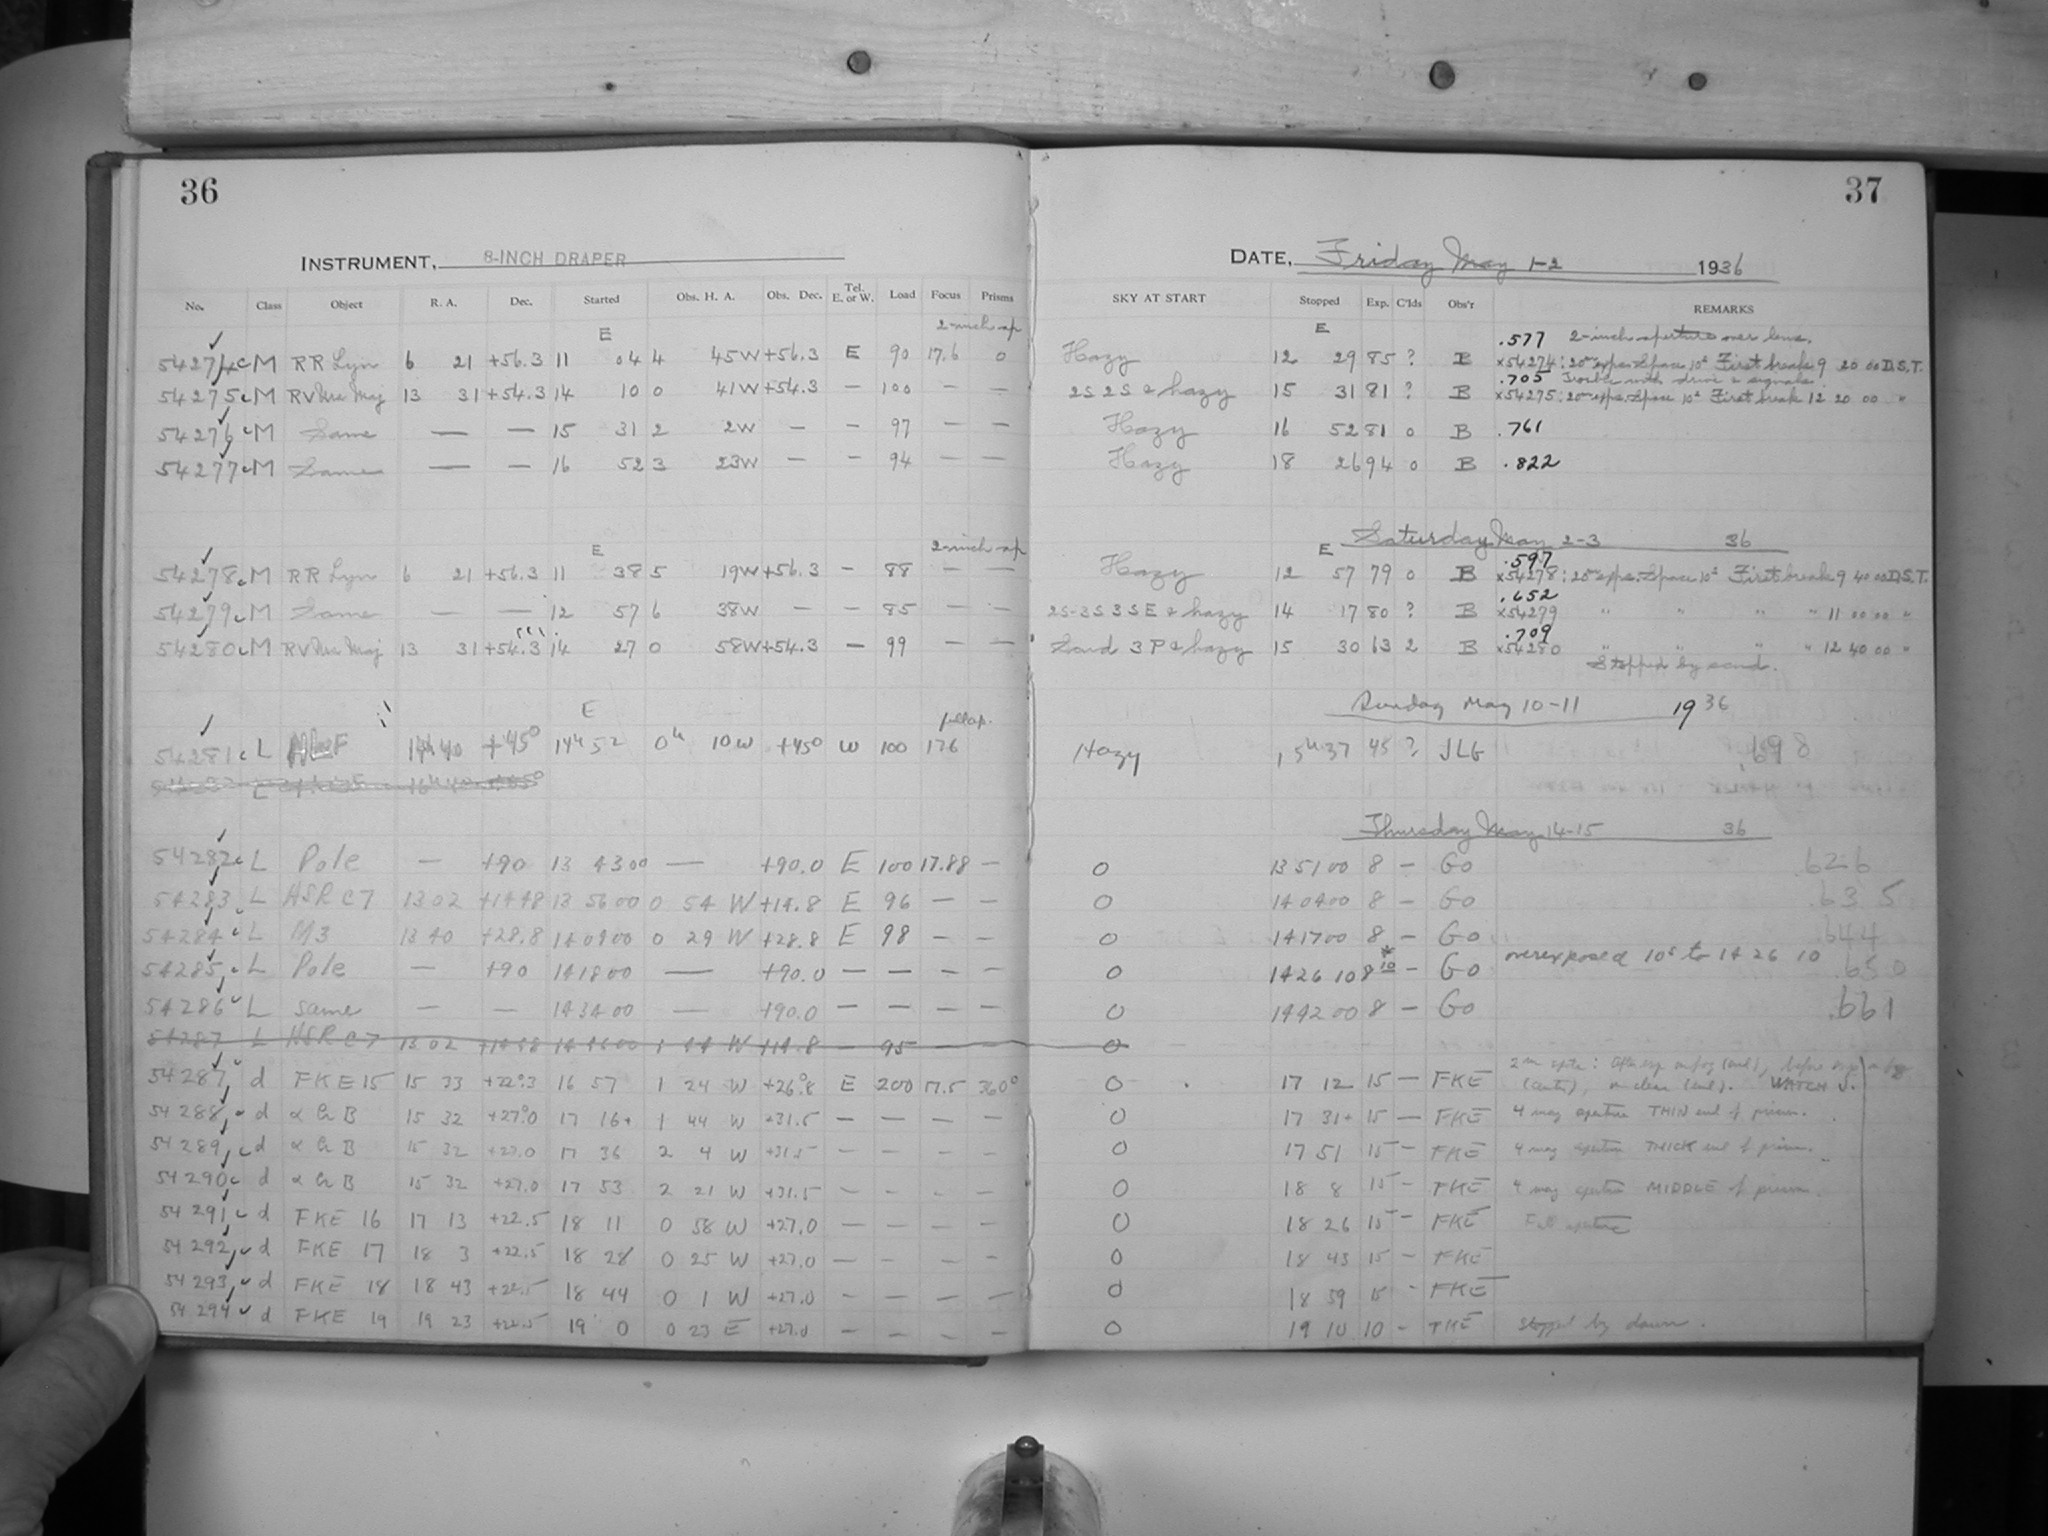 36
37
INSTRUMENT, 8-INCH DRAPER
DATE, Friday May 1-2 1936
No. Class Object R. A. Dec. Started Obs. H. A. Obs. Dec. Tel. E. or W. Load Focus Prisms SKY AT START Stopped Exp. C'lds Obs'r REMARKS
E 2-inch ap E .577 2-inch aperture over lens.
54274 c M RR Lyn 6 21 +56.3 11 04 4 45W +56.3 E 90 17.6 0 Hazy 12 29 85 ? B x54274: 20m exps. Space 10s First break 9 20 00 D.S.T.
.705 Trouble with drive & signals.
54275 c M RV Urs Maj 13 31 +54.3 14 10 0 41W +54.3 — 100 — — 2S 2S & hazy 15 31 81 ? B x54275: 20m exps. Space 10s First break 12 20 00 "
54276 c M Same — — 15 31 2 2W — — 97 — — Hazy 16 52 81 0 B .761
54277 c M Same — — 16 52 3 23W — — 94 — — Hazy 18 26 94 0 B .822
Saturday May 2-3 36
E 2-inch ap E .597
54278 c M RR Lyn 6 21 +56.3 11 38 5 19W +56.3 — 88 — — Hazy 12 57 79 0 B x54278: 20m exps. Space 10s First break 9 40 00 D.S.T.
.652
54279 c M Same — — 12 57 6 38W — — 85 — — 2S-3S 3SE & hazy 14 17 80 ? B x54279 " " " " 11 00 00 "
.709
54280 c M RV Urs Maj 13 31 +54.3 14 27 0 58W +54.3 — 99 — — Sand 3P & hazy 15 30 63 2 B x54280 " " " " 12 40 00 "
Stopped by sand.
Sunday May 10-11 1936
E full ap.
54281 c L 14h40 +45° 14h52 0h 10W +45° W 100 176 Hazy 15h37 45 ? JLG .698
Thursday May 14-15 36
54282 c L Pole — +90 13 43 00 — +90.0 E 100 17.88 — 0 13 51 00 8 — Go .626
54283 L HSR C7 13 02 +14.48 13 56 00 0 54 W +14.8 E 96 — — 0 14 04 00 8 — Go .635
54284 c L M3 13 40 +28.8 14 09 00 0 29 W +28.8 E 98 — — 0 14 17 00 8 — Go .644
54285 c L Pole — +90 14 18 00 — +90.0 — — — — 0 14 26 10 8 10* — Go overexposed 10s to 14 26 10 .650
54286 c L same — — 14 34 00 — +90.0 — — — — 0 14 42 00 8 — Go .661
54287 L HSR C7 13 02 +14.48 14 46 00 1 44 W +14.8 — 95 — — 0
54287 d FKE 15 15 33 +22°.3 16 57 1 24 W +26°.8 E 200 17.5 360° 0 17 12 15 — FKE WATCH
54288 c d α Cr B 15 32 +27°.0 17 16+ 1 44 W +31.5 — — — — 0 17 31+ 15 — FKE 4 aperture THIN end of prism.
54289 c d α Cr B 15 32 +27.0 17 36 2 4 W +31.5 — — — — 0 17 51 15 — FKE 4 aperture THICK end of prism.
54290 c d α Cr B 15 32 +27.0 17 53 2 21 W +31.5 — — — — 0 18 8 15 — FKE 4 aperture MIDDLE of prism.
54291 c d FKE 16 17 13 +22.5 18 11 0 58 W +27.0 — — — — 0 18 26 15 — FKE Full aperture
54292 c d FKE 17 18 3 +22.5 18 28 0 25 W +27.0 — — — — 0 18 43 15 — FKE
54293 c d FKE 18 18 43 +22.5 18 44 0 1 W +27.0 — — — — 0 18 59 15 — FKE
54294 c d FKE 19 19 23 +22.5 19 0 0 23 E +27.0 — — — — 0 19 10 10 — FKE Stopped by dawn.